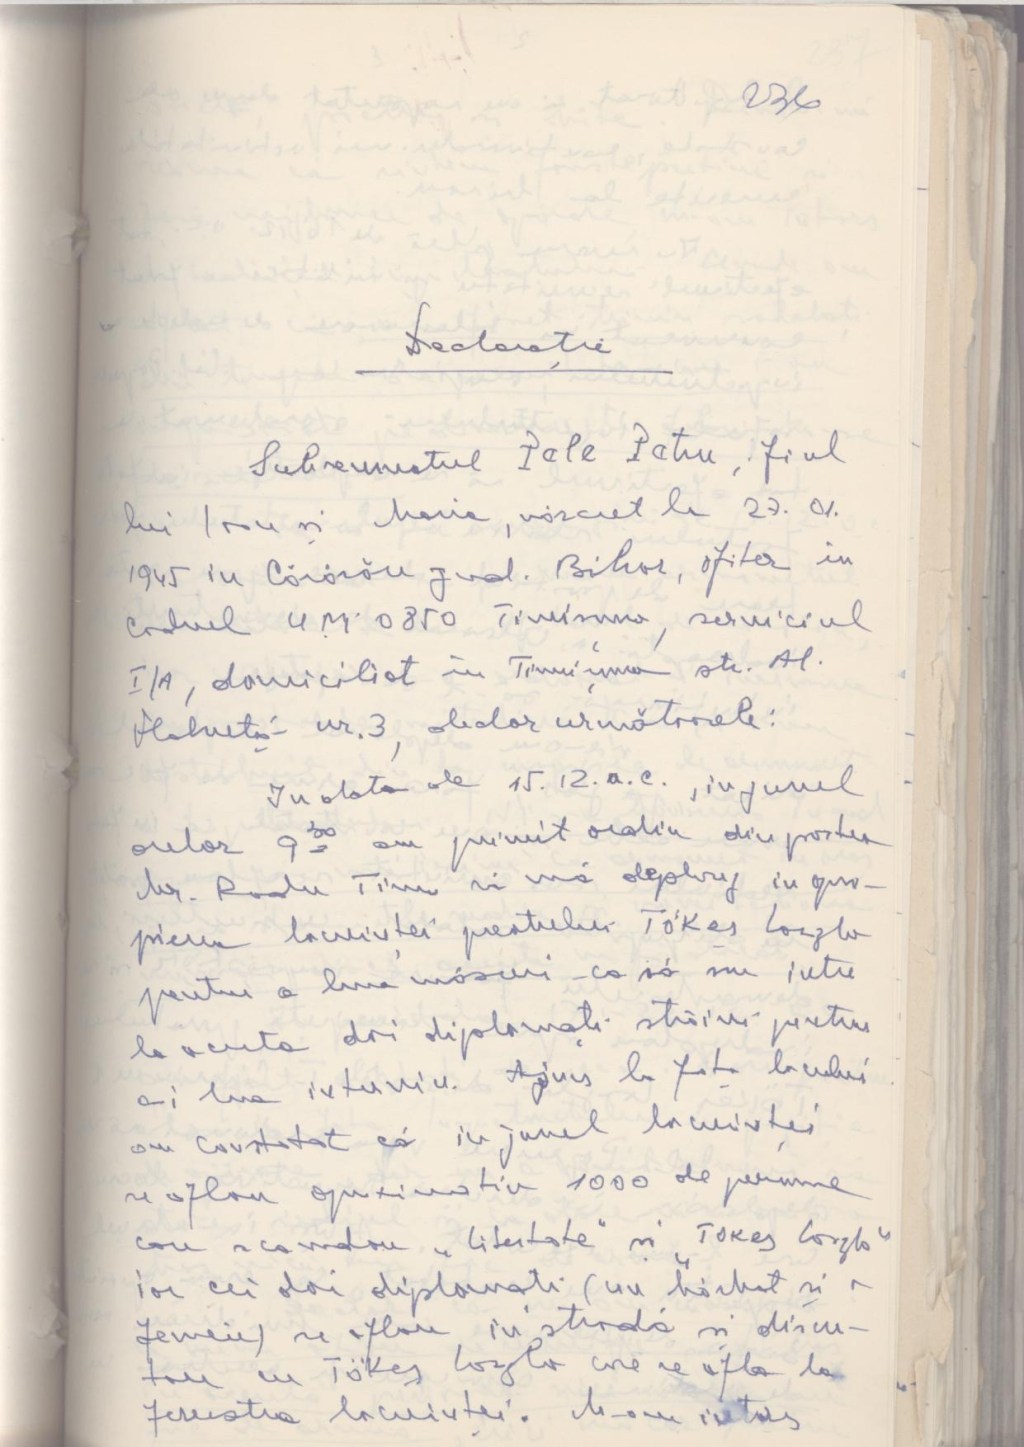 236
Declarație
Subsemnatul Pele Petru, fiul
lui Ioan și Maria, născut la 27.01.
1945 în Cărăsău jud. Bihor, ofițer în
cadrul U.M. 0850 Timișoara, serviciul
I/A, domiciliat în Timișoara str. Al.
nr. 3, declar următoarele:
În data de 15.12. a.c., în jurul
orelor 9³⁰ am primit ordin din partea
Mr. Radu Tinu să mă deplasez în apro-
pierea locuinței preotului Tökes Laszlo
pentru a lua măsuri ca să nu intre
la acesta doi diplomați străini pentru
a-i lua interviu. Ajuns la fața locului
am constatat că în jurul locuinței
se aflau aproximativ 1000 de persoane
care scandau „Libertate" și „Tökes Laszlo"
iar cei doi diplomați (un bărbat și o
femeie) se aflau în stradă și discu-
tau cu Tökes Laszlo care se afla la
fereastra locuinței. M-am întors